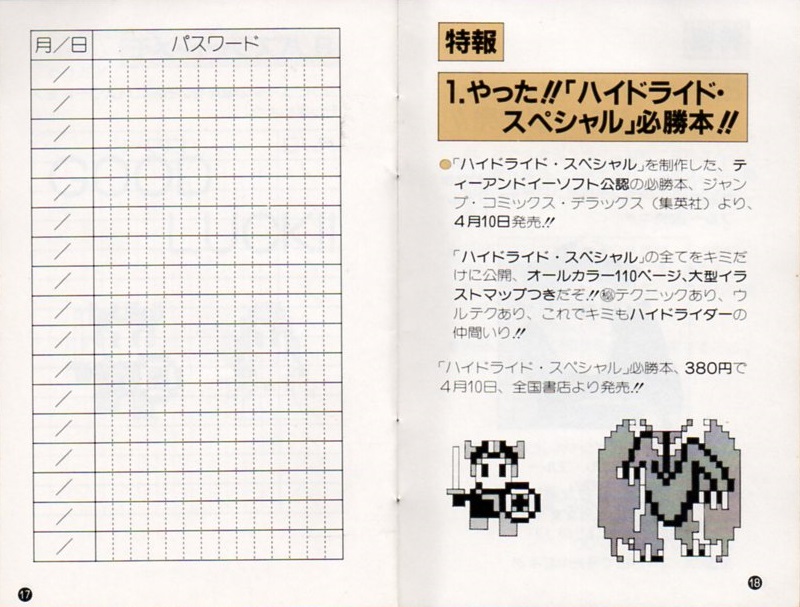 月／日 パスワード
／
／
／
／
／
／
／
／
／
／
／
／
／
／
／
／
／
17
特報
1.やった!!「ハイドライド・
スペシャル」必勝本!!
●「ハイドライド・スペシャル」を制作した、ティ
ーアンドイーソフト公認の必勝本、ジャン
プ・コミックス・デラックス（集英社）より、
4月10日発売!!
「ハイドライド・スペシャル」の全てをキミだ
けに公開、オールカラー110ページ、大型イラ
ストマップつきだぞ!!㊙テクニックあり、ウ
ルテクあり、これでキミもハイドライダーの
仲間いり!!
「ハイドライド・スペシャル」必勝本、380円で
4月10日、全国書店より発売!!
18